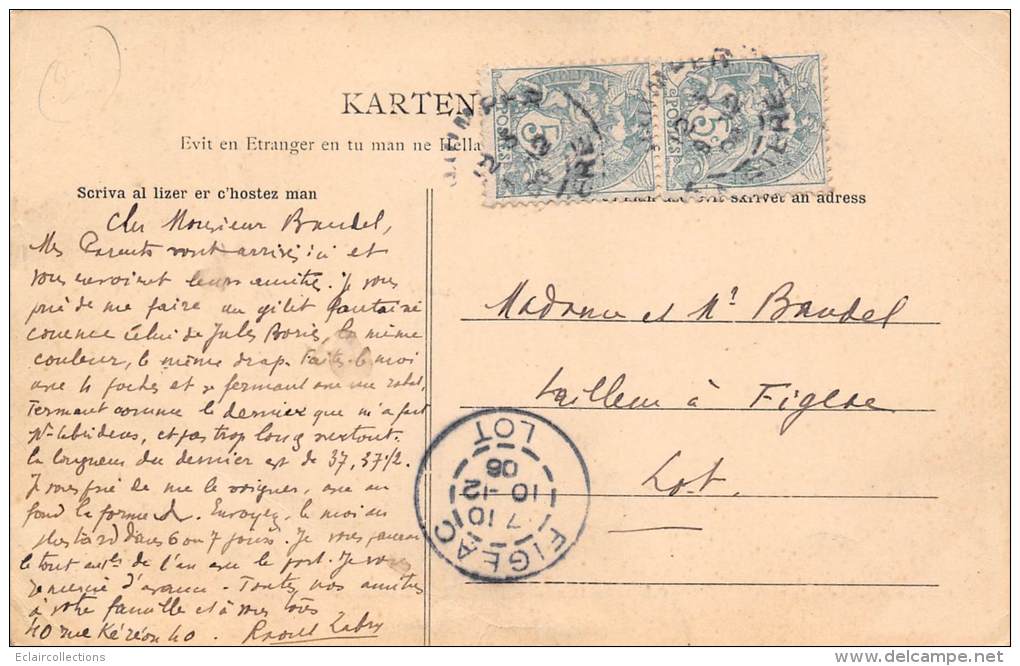 KARTEN
Evit en Etranger en tu man ne Hella
Scriva al lizer er c'hostez man
skrivet an adress
POSTES 5
POSTES 5
Cher Monsieur Baudel,
Mes Parents sont arrivés ici et
vous envoient leurs amitiés. Je vous
prie de me faire un gilet fantaisie
comme celui de Jules Bories, la même
couleur, le même drap. Faites-le moi
avec 4 poches et se fermant avec un rabat,
fermant comme le dernier que m'a fait
et pas trop long surtout.
La longueur du dernier est de 37, 37 1/2.
Je vous prie de me le soigner, avec au
fond la forme. Envoyez-le moi au
plus tard dans 6 ou 7 jours. Je vous
le tout de l'an avec le port. Je vous
remercie d'avance. Toutes nos amitiés
à votre famille et à vous tous
40 rue Kéréon 40. Raoul Labry
Madame et Mr Baudel
tailleur à Figeac
Lot.
FIGEAC
7 10
10 -12
06
LOT
Eclaircollections
www.delcampe.net